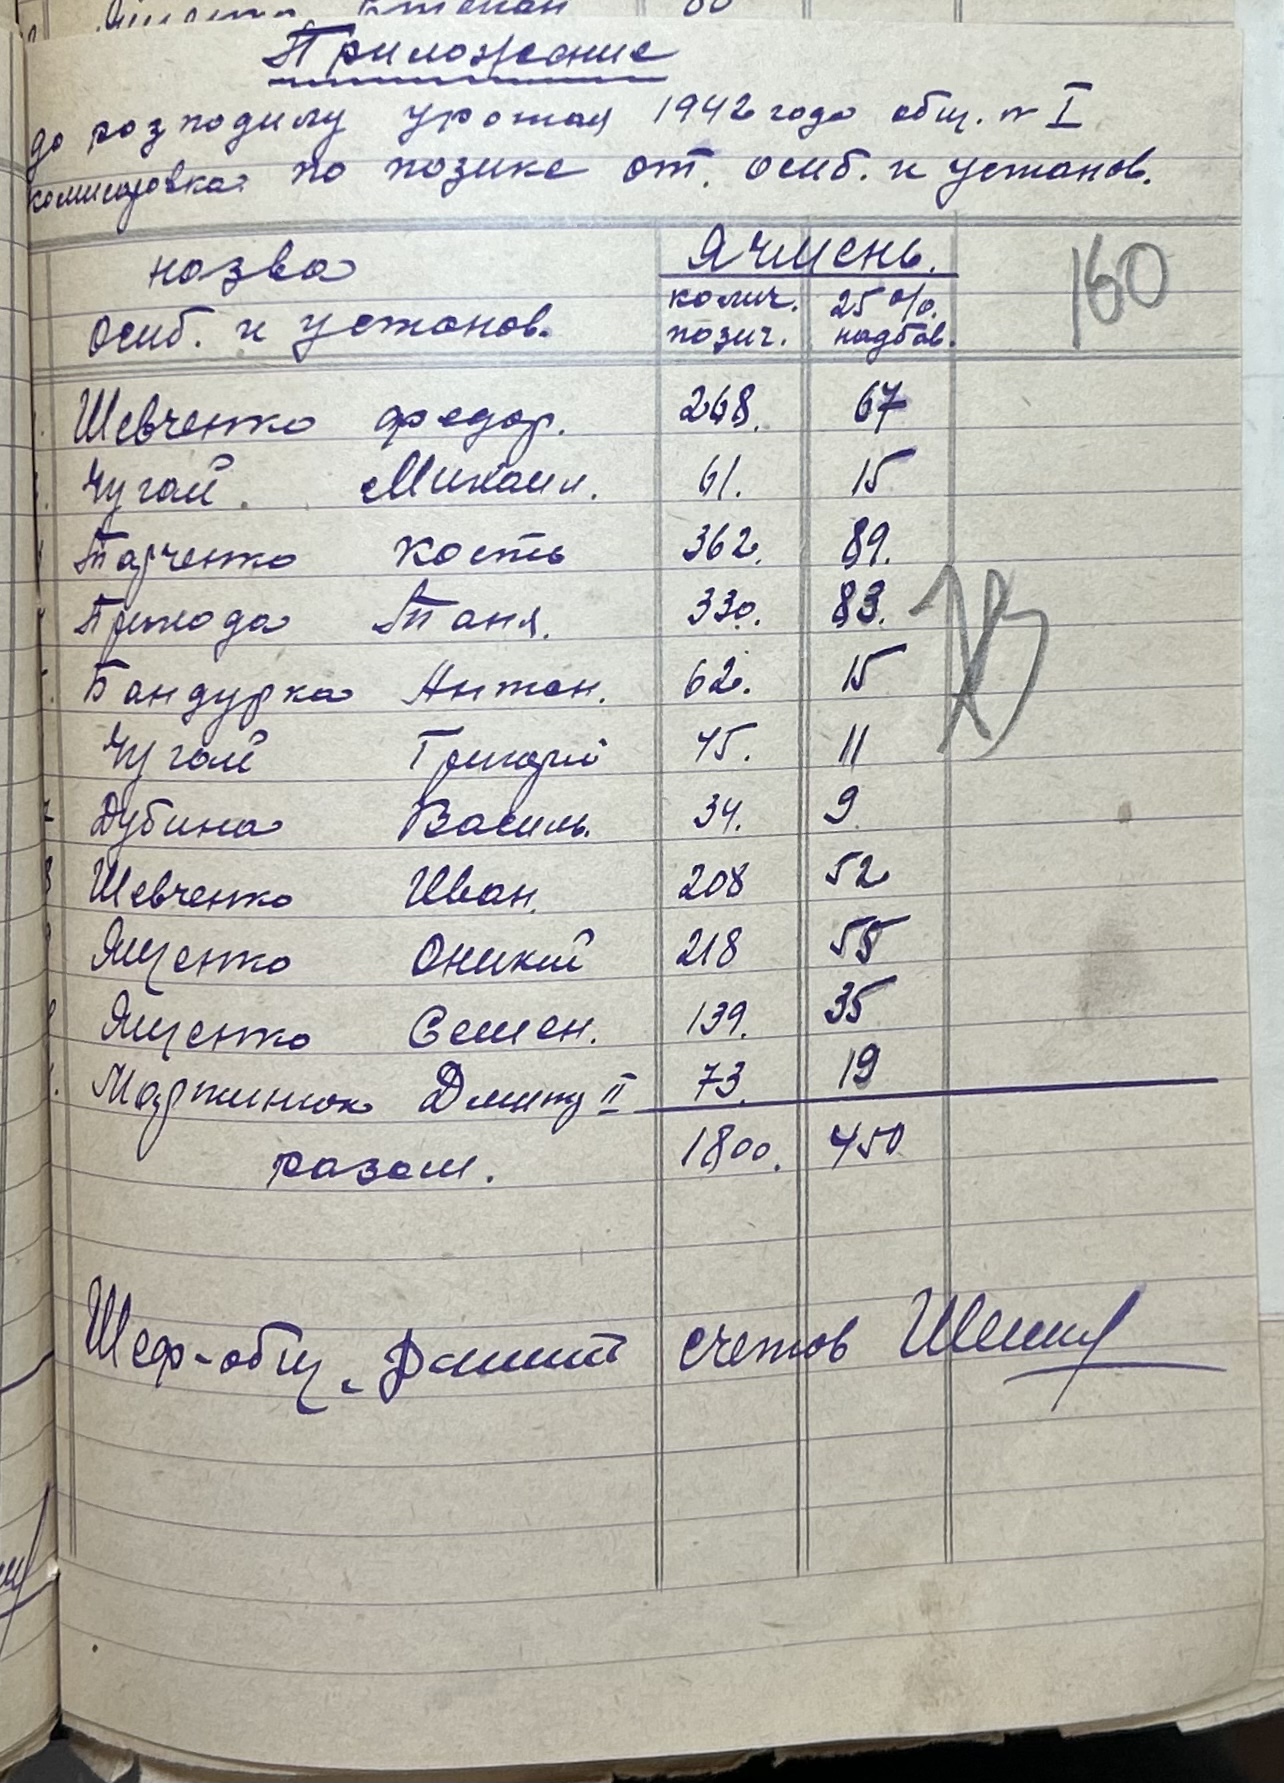 Приложение
до розподилу урожая 1942 года общ. № I
комисаровка по позике от. осиб. и установ.
назва
осиб. и установ.
Ячмень.
колич. позич.
25 %. надбав.
160
Шевченко федор. 268. 67
Чугай. Михаил. 61. 15
Тарченко Кость 362. 89.
Прихода Таня. 330. 83.
Бандурка Антон. 62. 15
Чугай Григорий 45. 11
7 Дубина Василь. 34. 9
8 Шевченко Иван. 208 52
9 Ященко Оникий 218 55
Ященко Семен. 139. 35
Мартинюк Дмитр II 73. 19
разом. 1800. 450
Шеф-общ. счетов